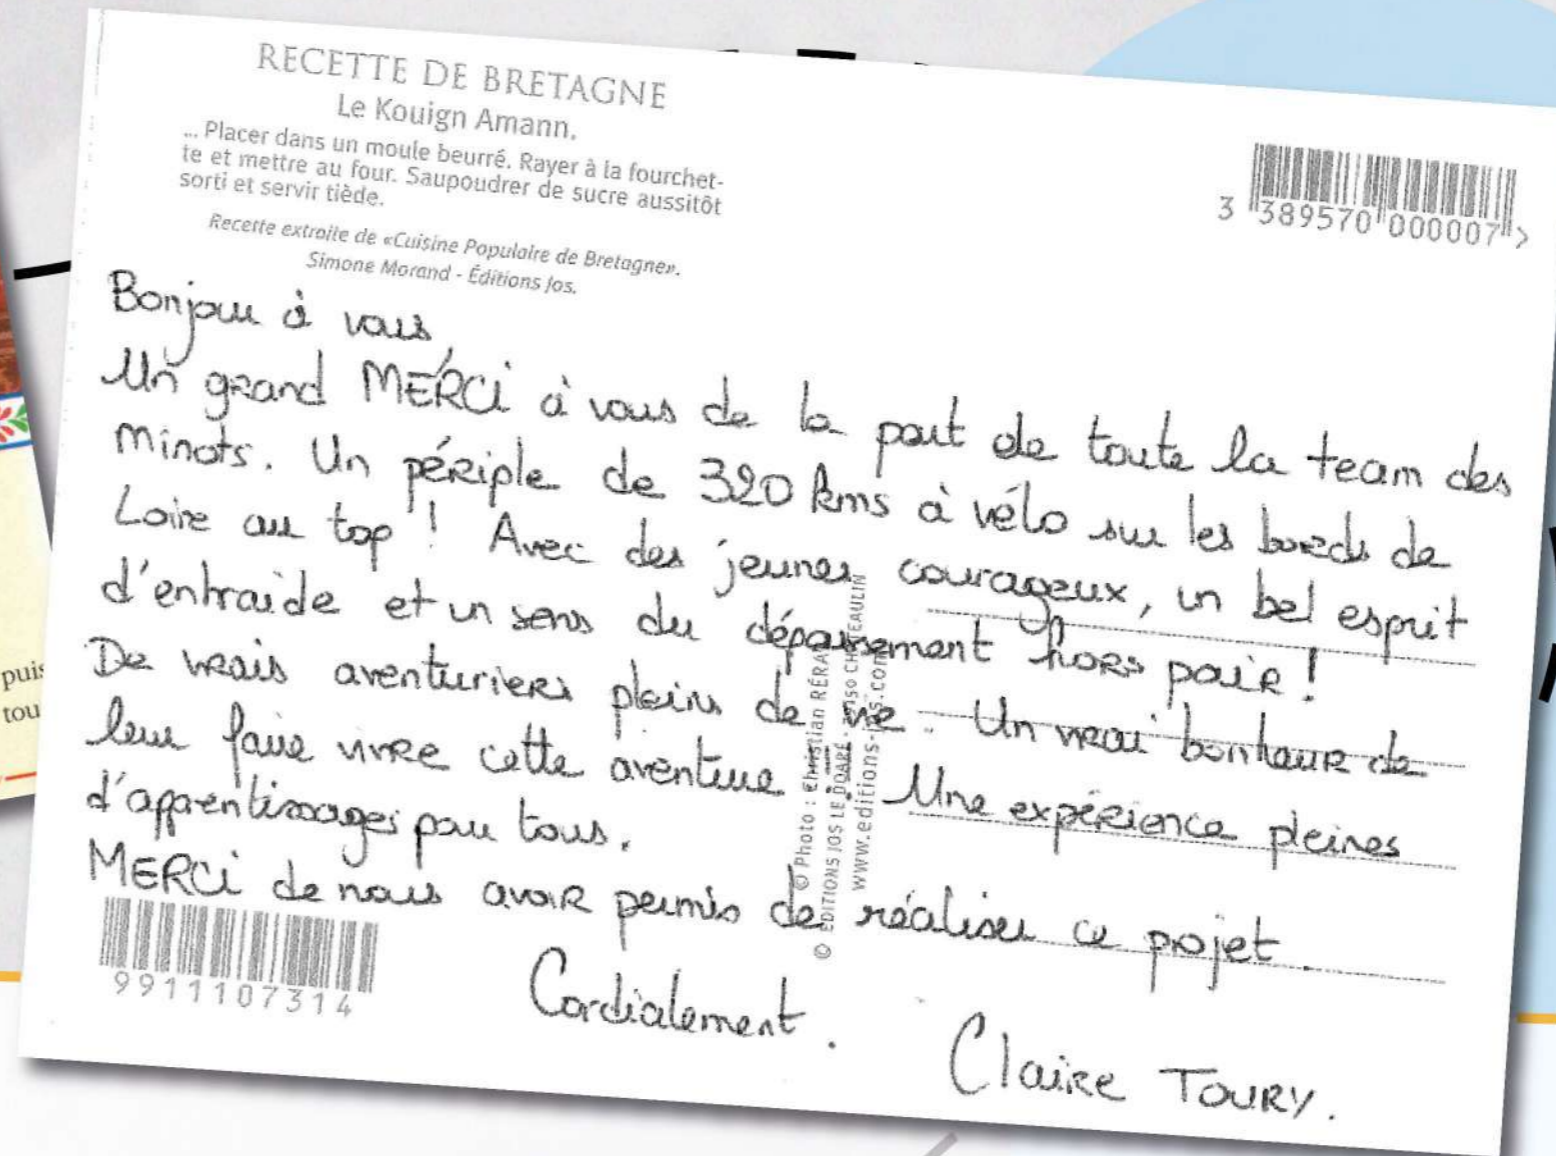 RECETTE DE BRETAGNE
Le Kouign Amann.
... Placer dans un moule beurré. Rayer à la fourchet-
te et mettre au four. Saupoudrer de sucre aussitôt
sorti et servir tiède.
Recette extraite de «Cuisine Populaire de Bretagne».
Simone Morand - Éditions Jos.
3 389570 000007 >
Bonjour à vous,
Un grand MERCi à vous de la part de toute la team des
minots. Un périple de 320 kms à vélo sur les bords de
Loire au top ! Avec des jeunes courageux, un bel esprit
d'entraide et un sens du dépassement hors pair !
De vrais aventuriers pleins de vie. Un vrai bonheur de
leur faire vivre cette aventure. Une expérience pleines
d'apprentissages pour tous.
MERCi de nous avoir permis de réaliser ce projet.
Cordialement.
Claire TOURY.
9911107314
© Photo : Christian
© EDITIONS JOS LE DOARÉ
www.editions-jos.com
puis
tou